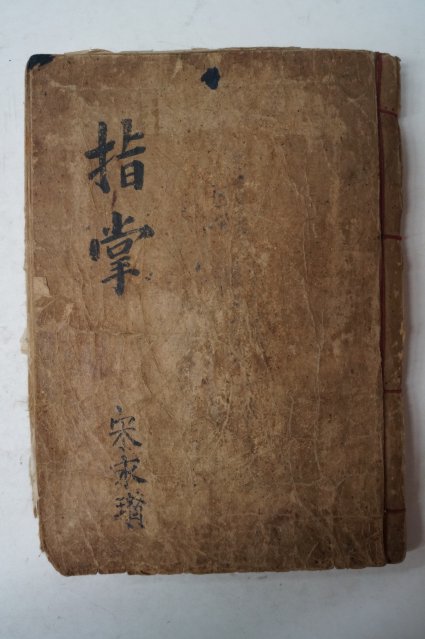 指掌
宋永瓚